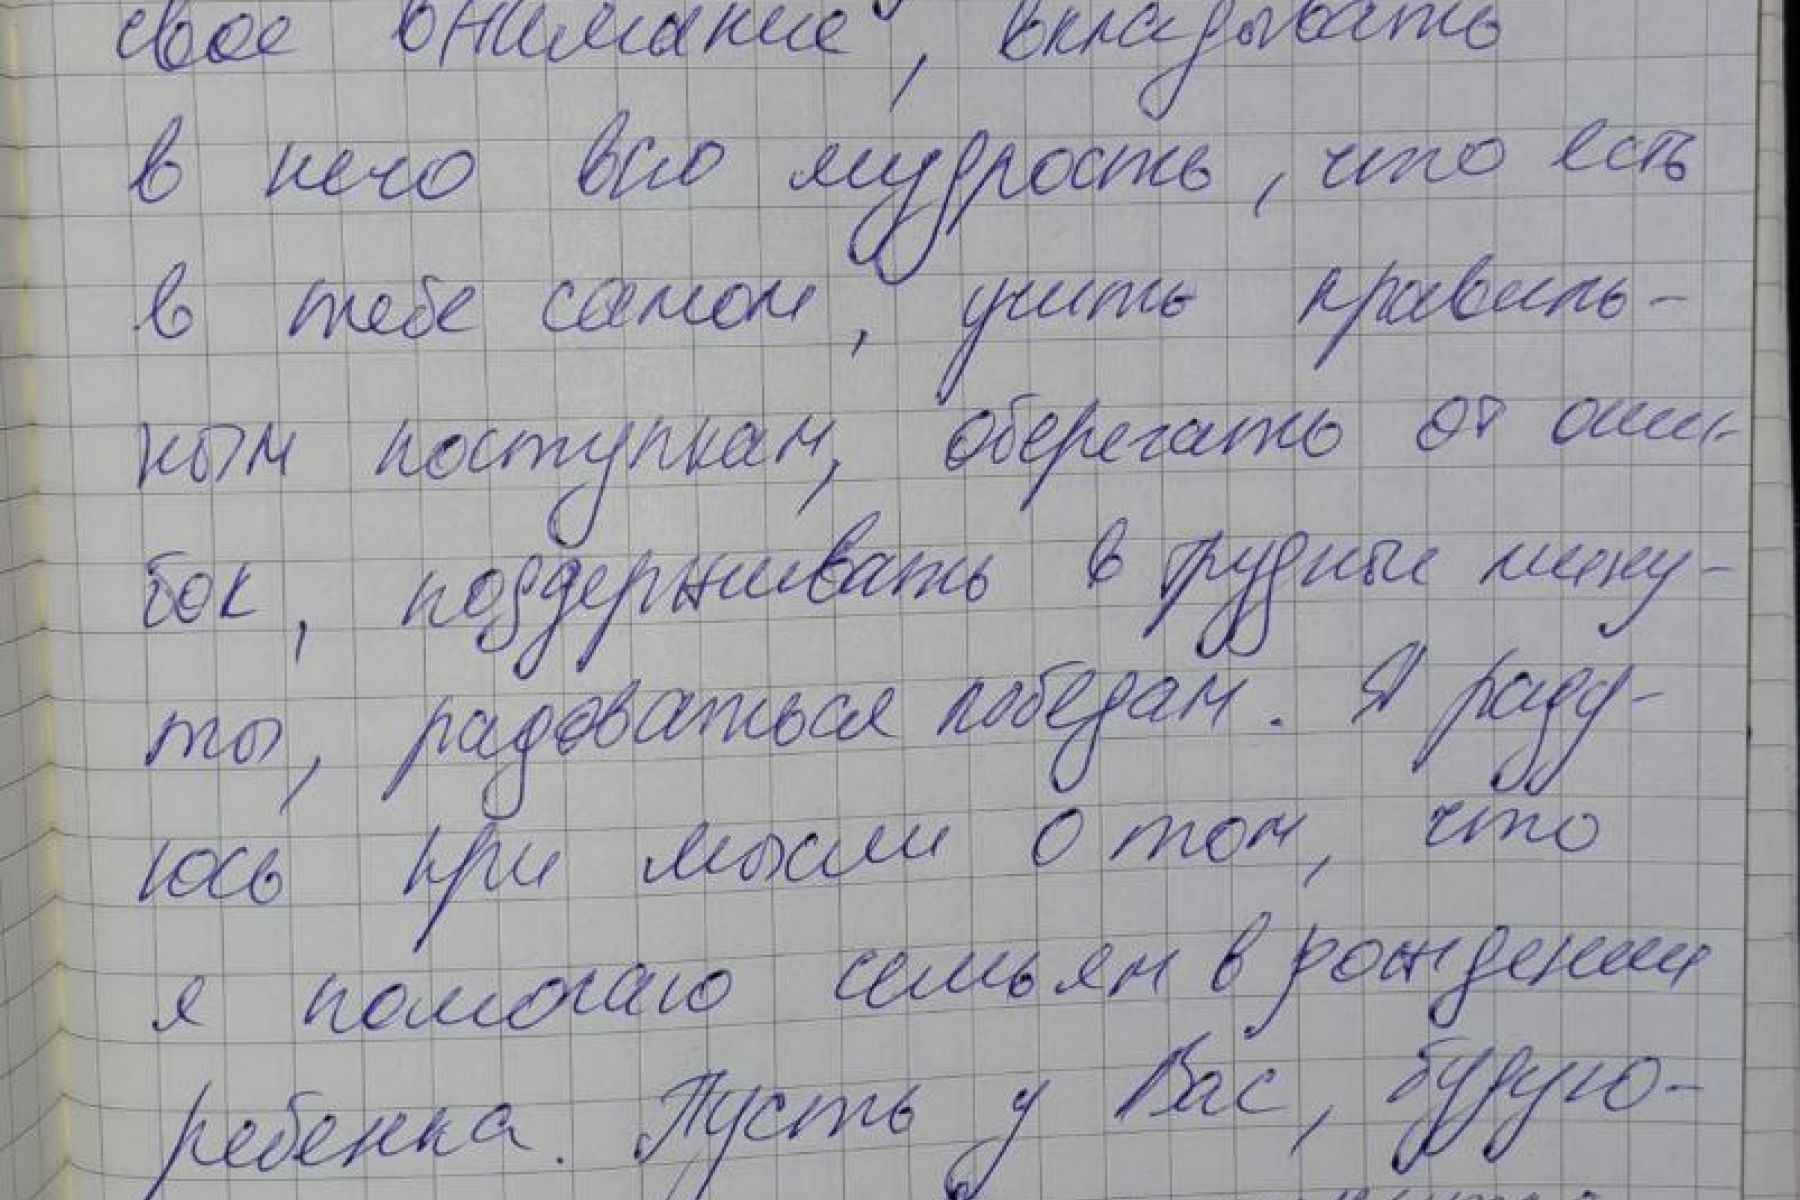 свое внимание, вкладывать
в него всю мудрость, что есть
в тебе самом, учить правиль-
ным поступкам, оберегать от оши-
бок, поддерживать в трудные мину-
ты, радоваться победам. Я раду-
юсь при мысли о том, что
я помогаю семьям в рождении
ребенка. Пусть у Вас, будую-